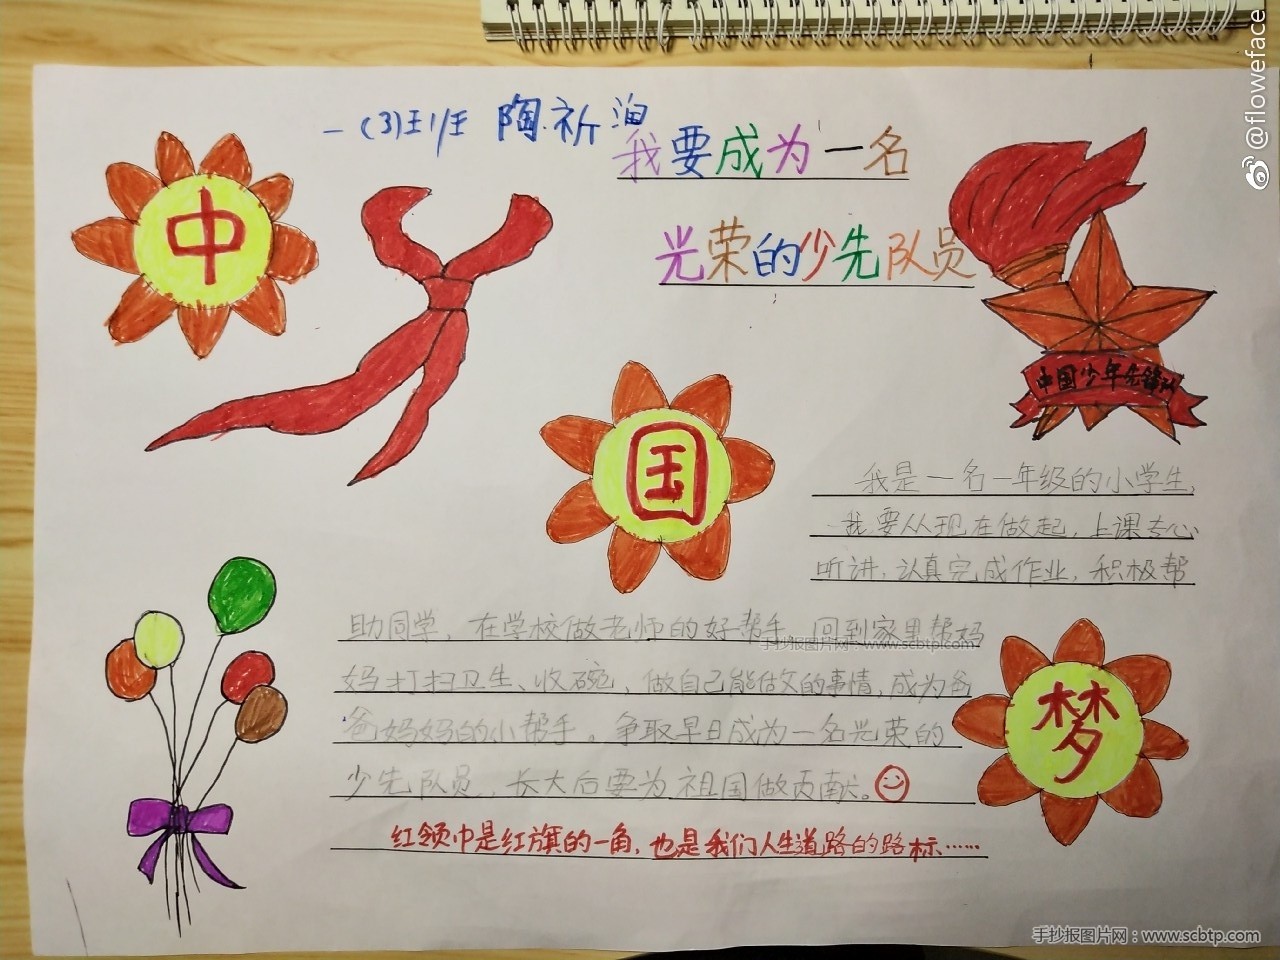 @floweface
一(3)班 陶祈润
我要成为一名
光荣的少先队员
中
国
梦
中国少年先锋队
我是一名一年级的小学生,
我要从现在做起,上课专心
听讲,认真完成作业,积极帮
助同学,在学校做老师的好帮手,回到家里帮妈
妈打扫卫生、收碗、做自己能做的事情,成为爸
爸妈妈的小帮手。争取早日成为一名光荣的
少先队员,长大后要为祖国做贡献。
红领巾是红旗的一角,也是我们人生道路的路标……
手抄报图片网:www.scbtp.com
手抄报图片网:www.scbtp.com